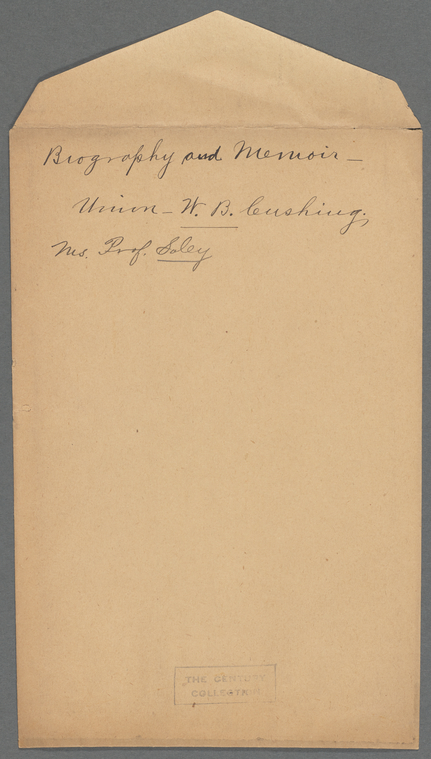 Biography and Memoir –
Union – W. B. Cushing,
Ms. Prof. Soley
THE CENTURY
COLLECTION